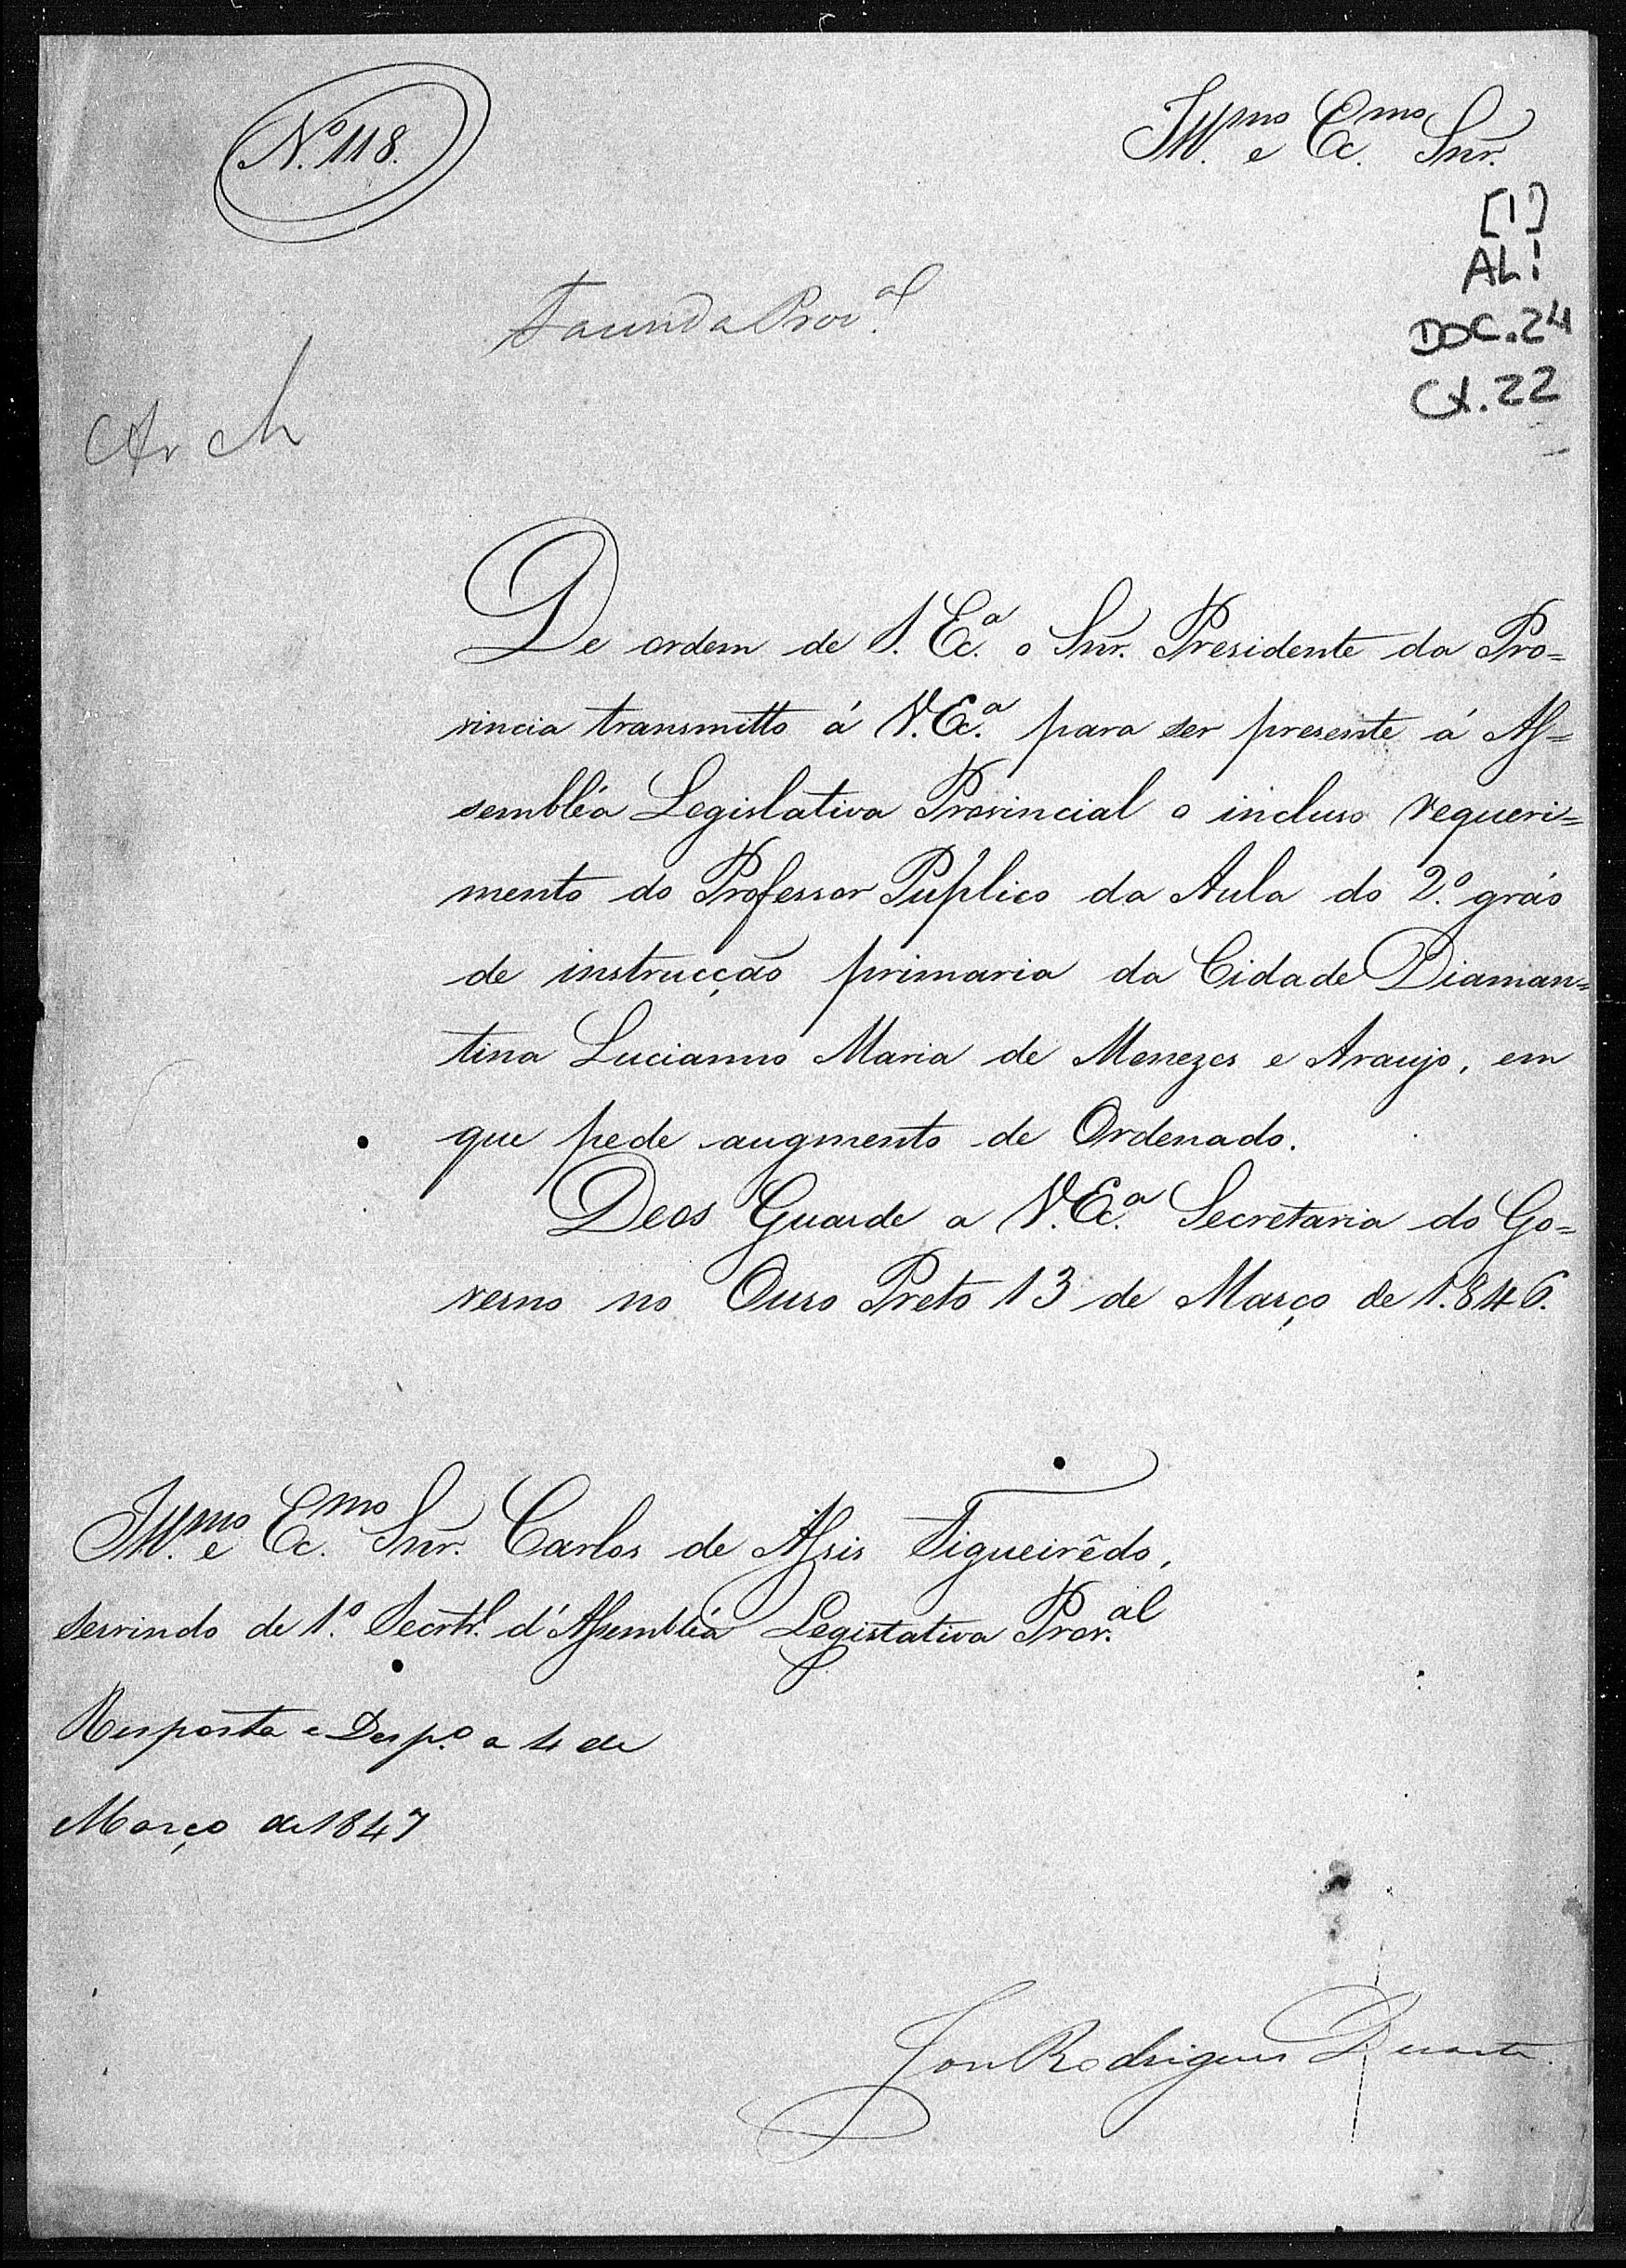 N.º 118.
Ill.mo e Ex.mo Snr.
[1]
AL!
DOC. 24
CX. 22
Fazenda Prov.al
Arch
De ordem de S. Ex.ª o Snr. Presidente da Pro=
vincia transmitto á V. Ex.ª para ser presente á As=
sembléa Legislativa Provincial o incluso requeri=
mento do Professor Publico da Aula do 2.º gráo
de instrucção primaria da Cidade Diaman=
tina Lucianno Maria de Menezes e Araujo, em
que pede augmento de Ordenado.
Deos Guarde a V. Ex.ª Secretaria do Go=
verno no Ouro Preto 13 de Março de 1.846.
Ill.mo e Ex.mo Snr. Carlos de Assis Figueirêdo,
servindo de 1.º d'Assembléa Legislativa Prov.al
Resposta e Desp.º a 4 de
Março de 1847
Rodrigues Duarte.